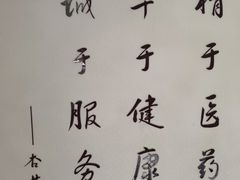 精于医药
于健康
诚于服务
——杏